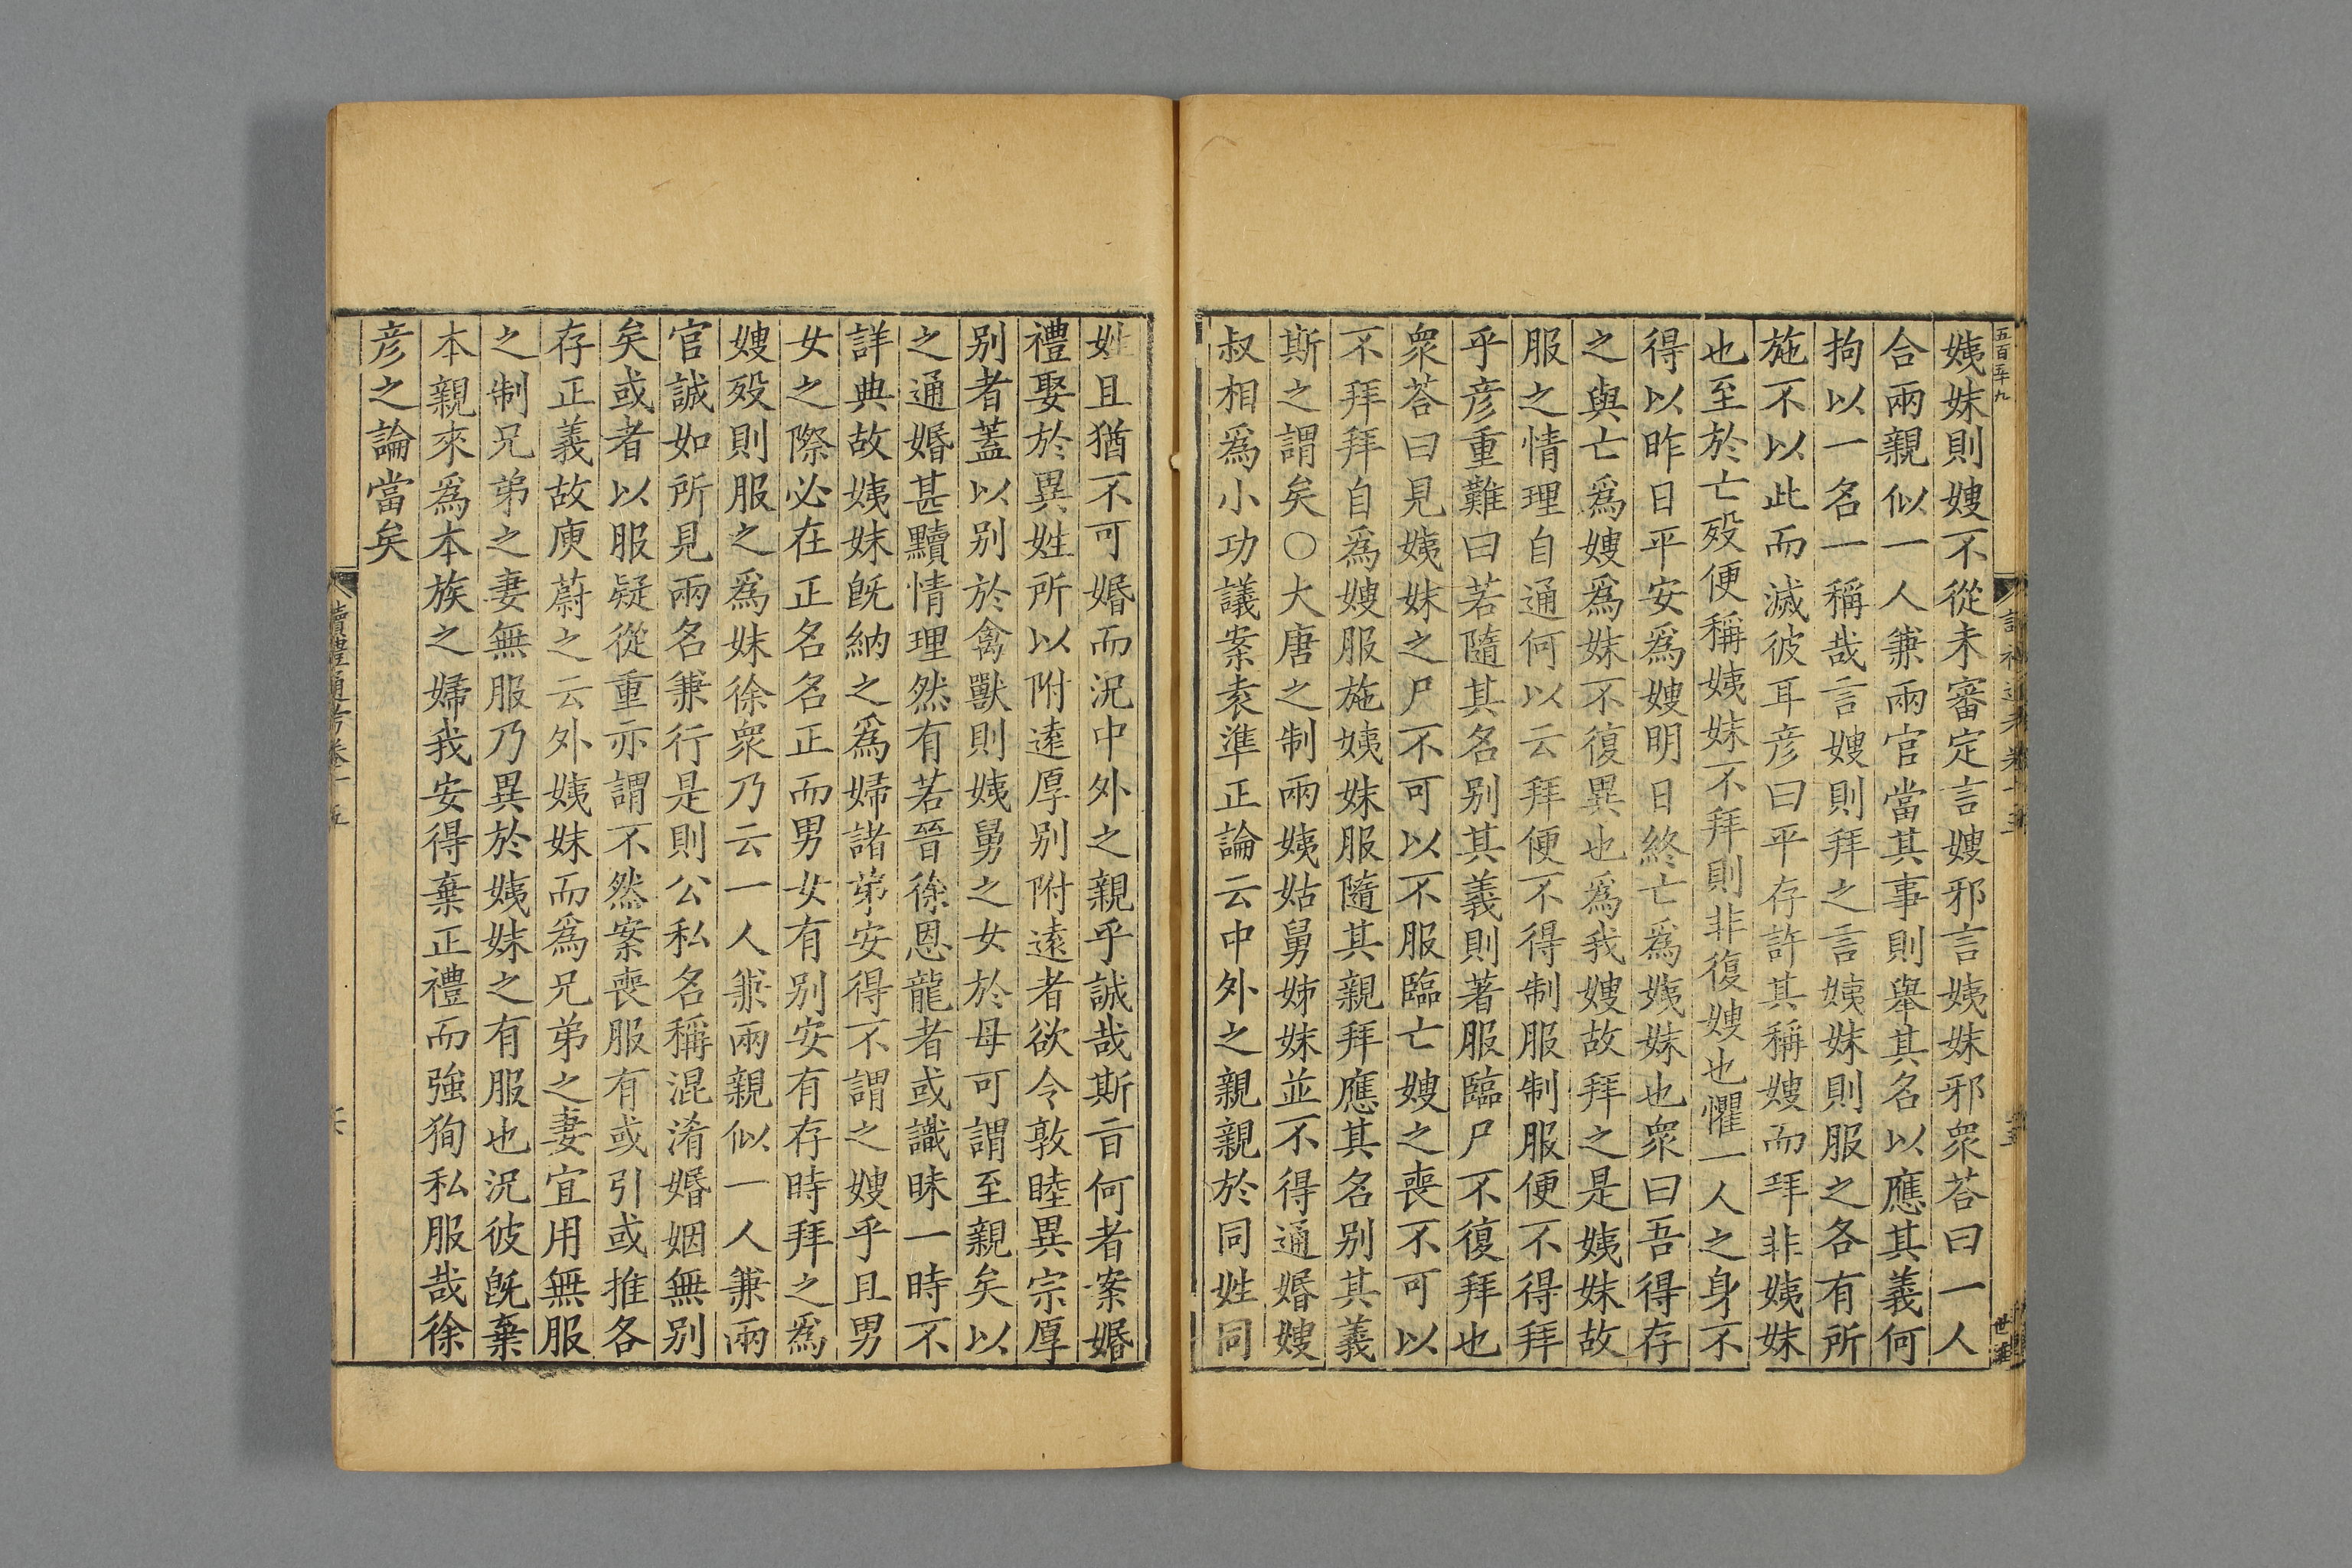 五百五十九
姨妹則嫂不從未審定言嫂邪言姨妹邪衆荅曰一人
合兩親似一人兼兩官當其事則舉其名以應其義何
拘以一名一稱哉言嫂則拜之言姨妹則服之各有所
施不以此而滅彼耳彦曰平存許其稱嫂而拜非姨妹
也至於亡歿便稱姨妹不拜則非復嫂也懼一人之身不
得以昨日平安爲嫂明日終亡爲姨妹也衆曰吾得存
之與亡爲嫂爲妹不復異也爲我嫂故拜之是姨妹故
服之情理自通何以云拜便不得制服制服便不得拜
乎彦重難曰若隨其名别其義則著服臨尸不復拜也
衆荅曰見姨妹之尸不可以不服臨亡嫂之喪不可以
不拜拜自爲嫂服施姨妹服隨其親拜應其名别其義
斯之謂矣○大唐之制兩姨姑舅姊妹並不得通婚嫂
叔相爲小功議案袁準正論云中外之親親於同姓同
姓且猶不可婚而況中外之親乎誠哉斯言何者案婚
禮娶於異姓所以附遠厚别附遠者欲令敦睦異宗厚
别者蓋以别於禽獸則姨舅之女於母可謂至親矣以
之通婚甚黷情理然有若晉徐恩龍者或識昧一時不
詳典故姨妹旣納之爲婦諸弟安得不謂之嫂乎且男
女之際必在正名名正而男女有别安有存時拜之爲
嫂歿則服之爲妹徐衆乃云一人兼兩親似一人兼兩
官誠如所見兩名兼行是則公私名稱混淆婚姻無别
矣或者以服疑從重亦謂不然案喪服有或引或推各
存正義故庾蔚之云外姨妹而爲兄弟之妻宜用無服
之制兄弟之妻無服乃異於姨妹之有服也況彼旣棄
本親來爲本族之婦我安得棄正禮而強徇私服哉徐
彦之論當矣
讀禮通考卷十五